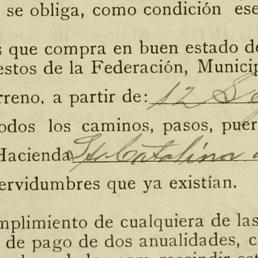 se obliga, como condición ese
s que compra en buen estado de
estos de la Federación, Municip
rreno, a partir de: 12 S
odos los caminos, pasos, puer
Hacienda Sta Catalina
ervidumbres que ya existían.
mplimiento de cualquiera de las
de pago de dos anualidades, c